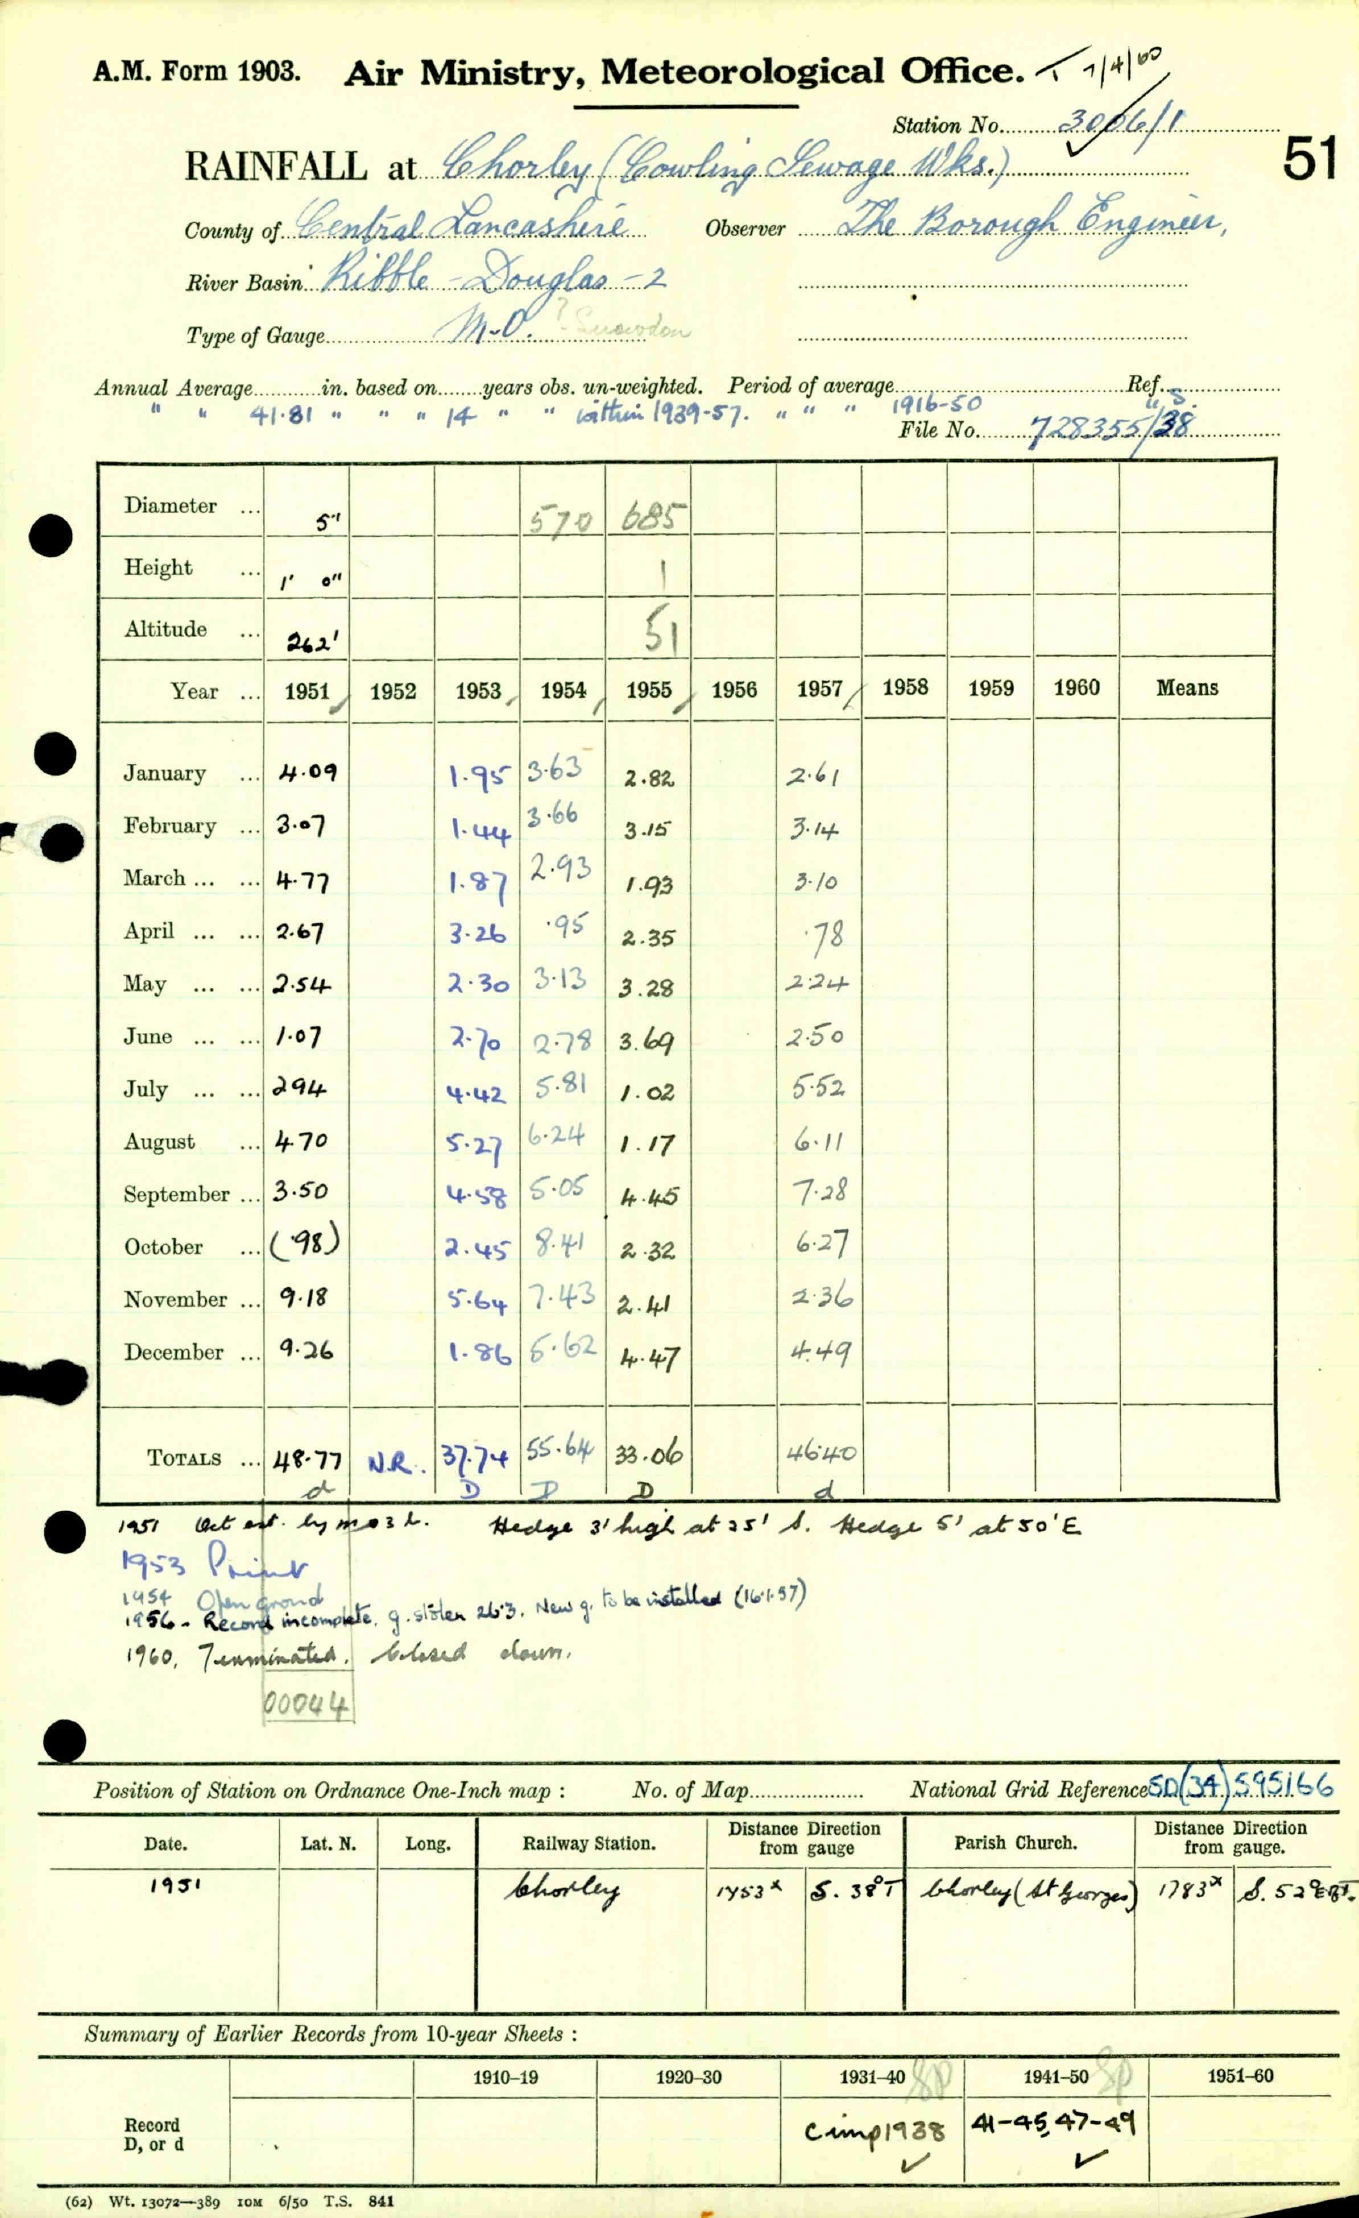 A.M. Form 1903. Air Ministry, Meteorological Office. T 7/4/60
Station No. 3006/1
51
RAINFALL at Chorley (Cowling Sewage Wks.)
County of Central Lancashire Observer The Borough Engineer,
River Basin Ribble - Douglas - 2
Type of Gauge M.O. ? Snowdon
Annual Average in. based on years obs. un-weighted. Period of average Ref.
" " 41.81 " " " 14 " " within 1939-57. " " " 1916-50 " S.
File No. 728355/38
Diameter ... 5" 570 685
Height ... 1' 0" 1
Altitude ... 262' 51
Year ... 1951 1952 1953 1954 1955 1956 1957 1958 1959 1960 Means
January ... 4.09 1.95 3.63 2.82 2.61
February ... 3.07 1.44 3.66 3.15 3.14
March ... ... 4.77 1.87 2.93 1.93 3.10
April ... ... 2.67 3.26 .95 2.35 .78
May ... ... 2.54 2.30 3.13 3.28 2.24
June ... ... 1.07 2.70 2.78 3.69 2.50
July ... ... 2.94 4.42 5.81 1.02 5.52
August ... 4.70 5.27 6.24 1.17 6.11
September ... 3.50 4.58 5.05 4.45 7.28
October ... (.98) 2.45 8.41 2.32 6.27
November ... 9.18 5.64 7.43 2.41 2.36
December ... 9.26 1.86 5.62 4.47 4.49
TOTALS ... 48.77 N.R. 37.74 55.64 33.06 46.40
d D D D d
1951 Oct est. by m o 3 b. Hedge 3' high at 25' S. Hedge 5' at 50' E
1953 Print
1954 Open ground
1956 - Record incomplete. g. stolen 26.3. New g. to be installed (16.1.57)
1960. Terminated. Closed down.
00044
Position of Station on Ordnance One-Inch map : No. of Map National Grid Reference SD(34)595166
Date. Lat. N. Long. Railway Station. Distance from Direction gauge Parish Church. Distance from Direction gauge.
1951 Chorley 1453x S. 38° T Chorley (St Georges) 1783x S. 52°
Summary of Earlier Records from 10-year Sheets :
1910–19 1920–30 1931–40 SP 1941–50 SP 1951–60
Record D, or d C imp 1938 41-45, 47-49
(62) Wt. 13072—389 10M 6/50 T.S. 841